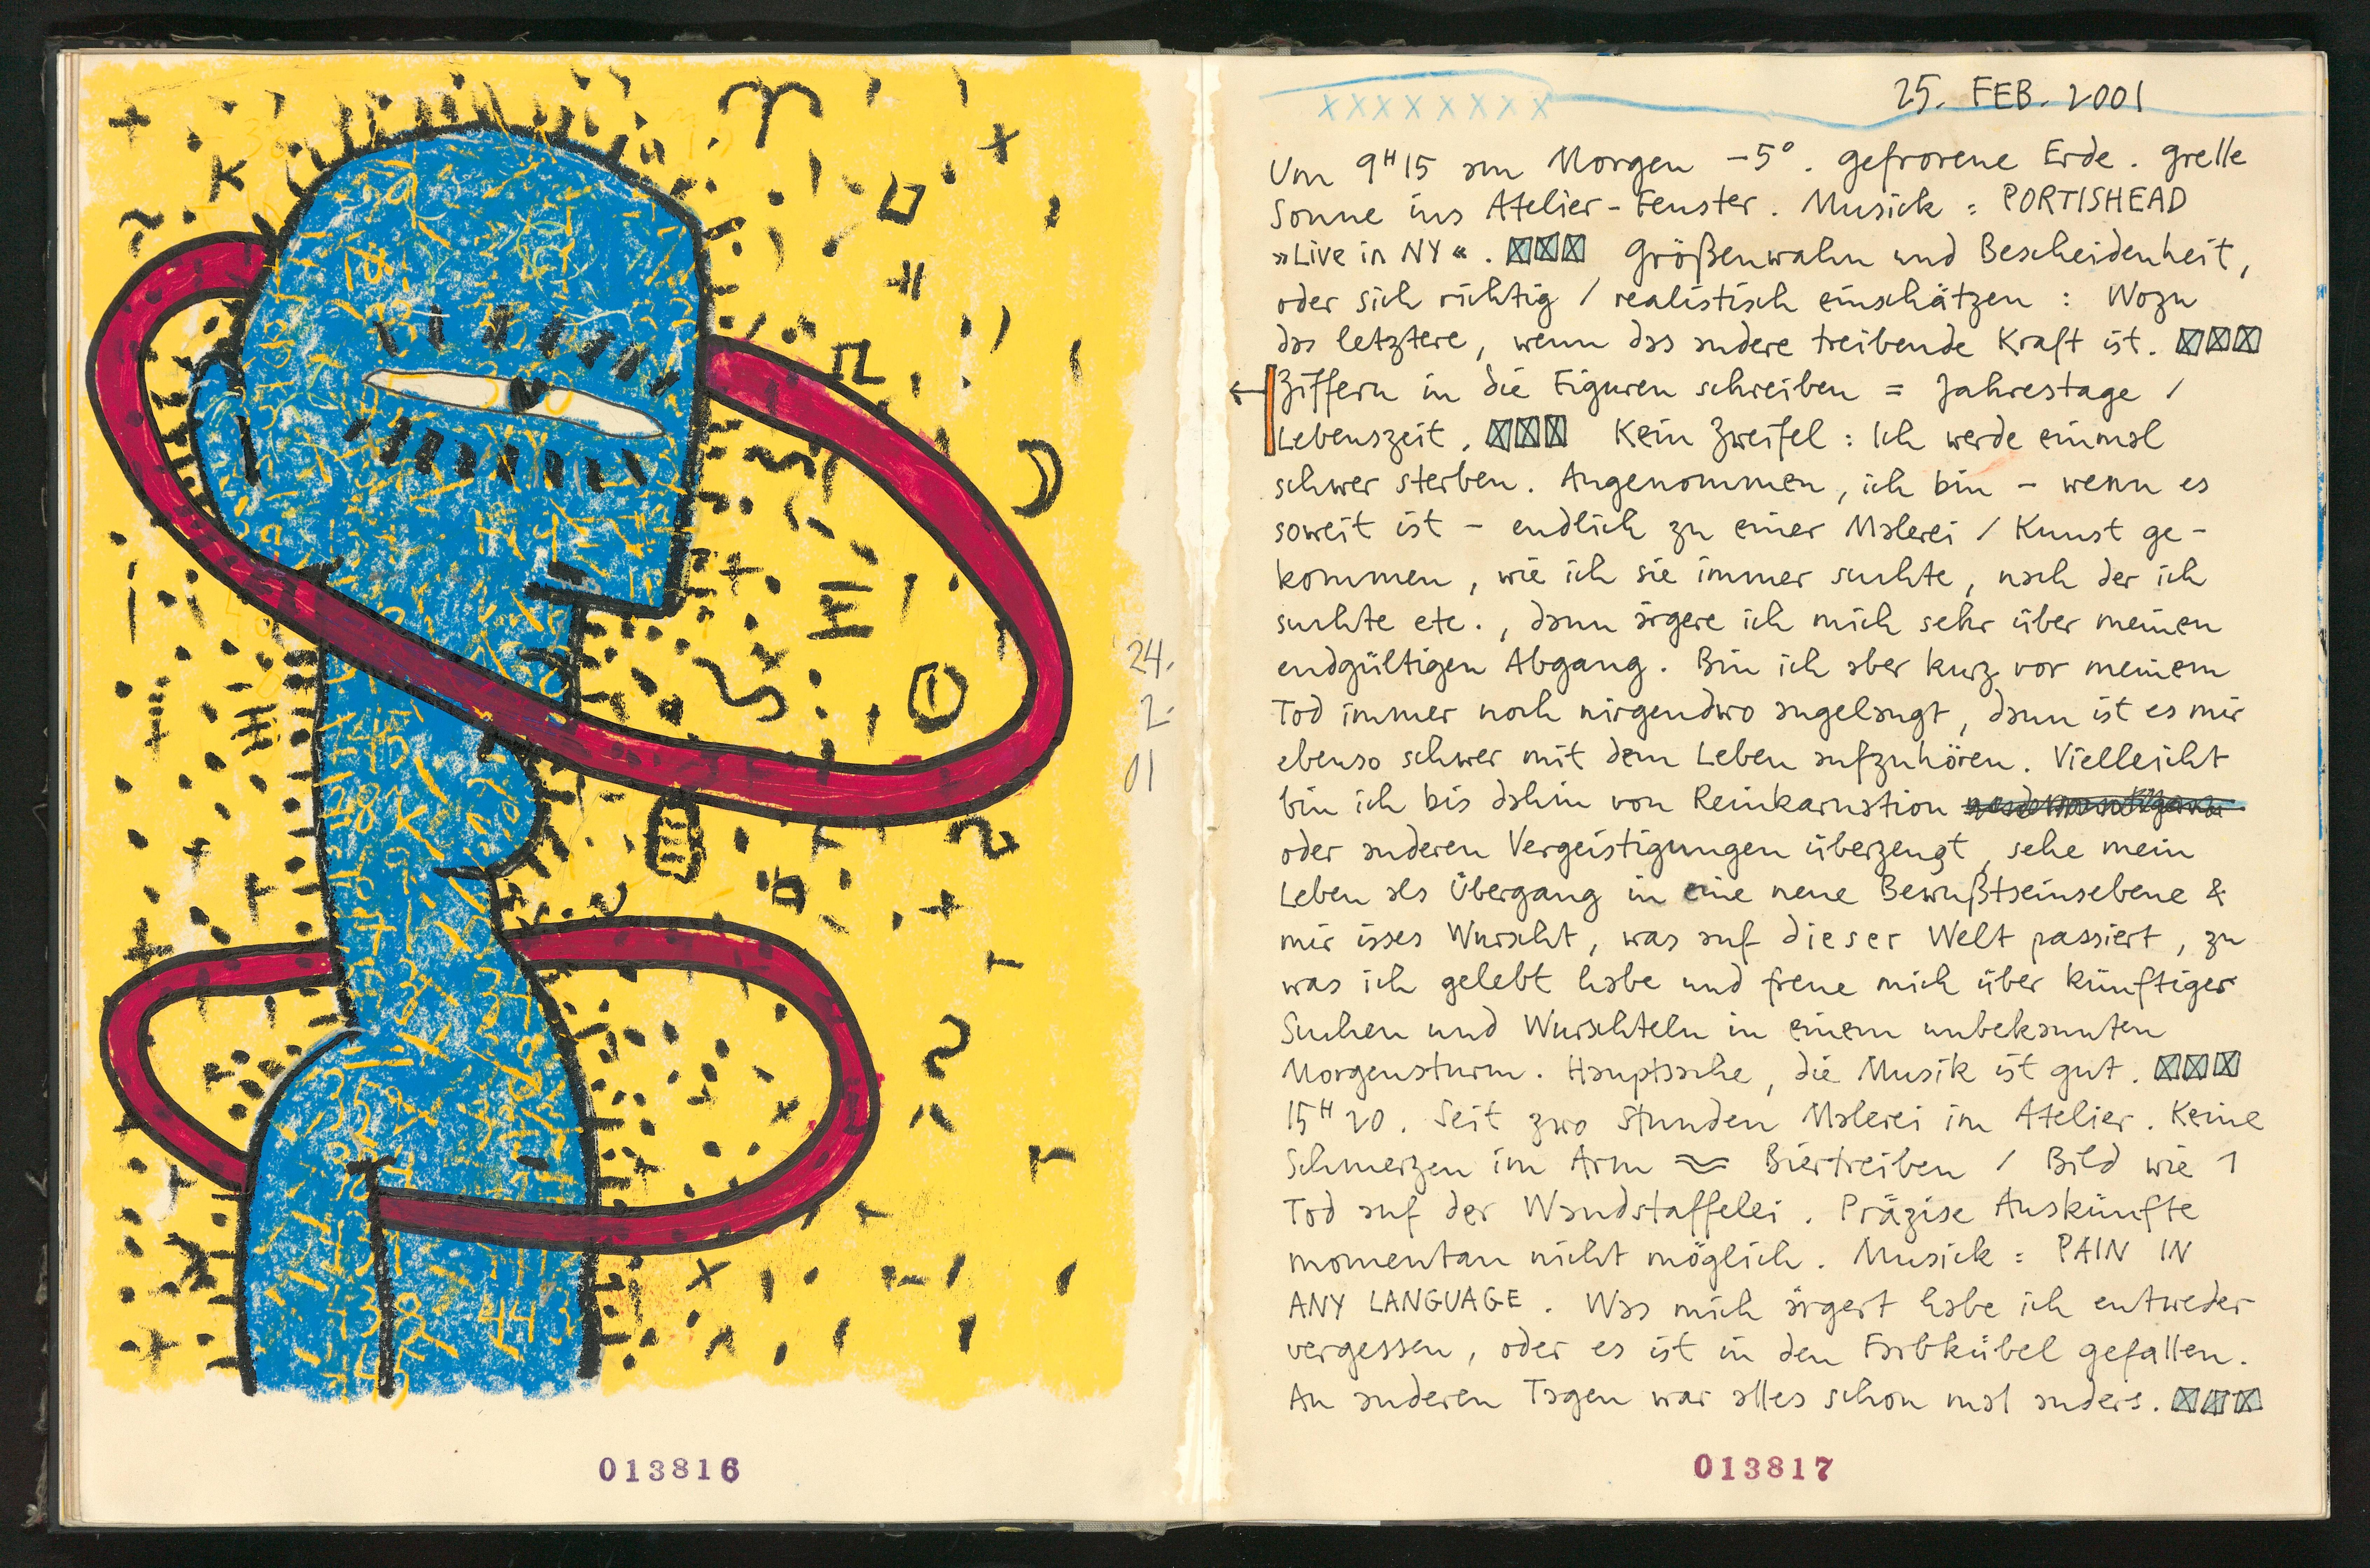 24.
2.
01
013816
25. FEB. 2001
XXXXXXXX
Um 9H15 am Morgen -5°. gefrorene Erde. grelle
Sonne ins Atelier-Fenster. Musick: PORTISHEAD
»Live in NY«. Größenwahn und Bescheidenheit,
oder sich richtig / realistisch einschätzen: Wozu
das letztere, wenn das andere treibende Kraft ist.
Ziffern in die Figuren schreiben = Jahrestage /
Lebenszeit. Kein Zweifel: Ich werde einmal
schwer sterben. Angenommen, ich bin - wenn es
soweit ist - endlich zu einer Malerei / Kunst ge-
kommen, wie ich sie immer suchte, nach der ich
suchte etc., dann ärgere ich mich sehr über meinen
endgültigen Abgang. Bin ich aber kurz vor meinem
Tod immer noch nirgendwo angelangt, dann ist es mir
ebenso schwer mit dem Leben aufzuhören. Vielleicht
bin ich bis dahin von Reinkarnation
oder anderen Vergeistigungen überzeugt, sehe mein
Leben als Übergang in eine neue Bewußtseinsebene &
mir isses Wurscht, was auf dieser Welt passiert, zu
was ich gelebt habe und freue mich über künftiges
Suchen und Wurschteln in einem unbekannten
Morgensturm. Hauptsache, die Musik ist gut.
15H20. Seit zwo Stunden Malerei im Atelier. Keine
Schmerzen im Arm ≈ Biertreiben / Bild wie 1
Tod auf der Wandstaffelei. Präzise Auskünfte
momentan nicht möglich. Musick: PAIN IN
ANY LANGUAGE. Was mich ärgert habe ich entweder
vergessen, oder es ist in den Farbkübel gefallen.
An anderen Tagen war alles schon mal anders.
013817